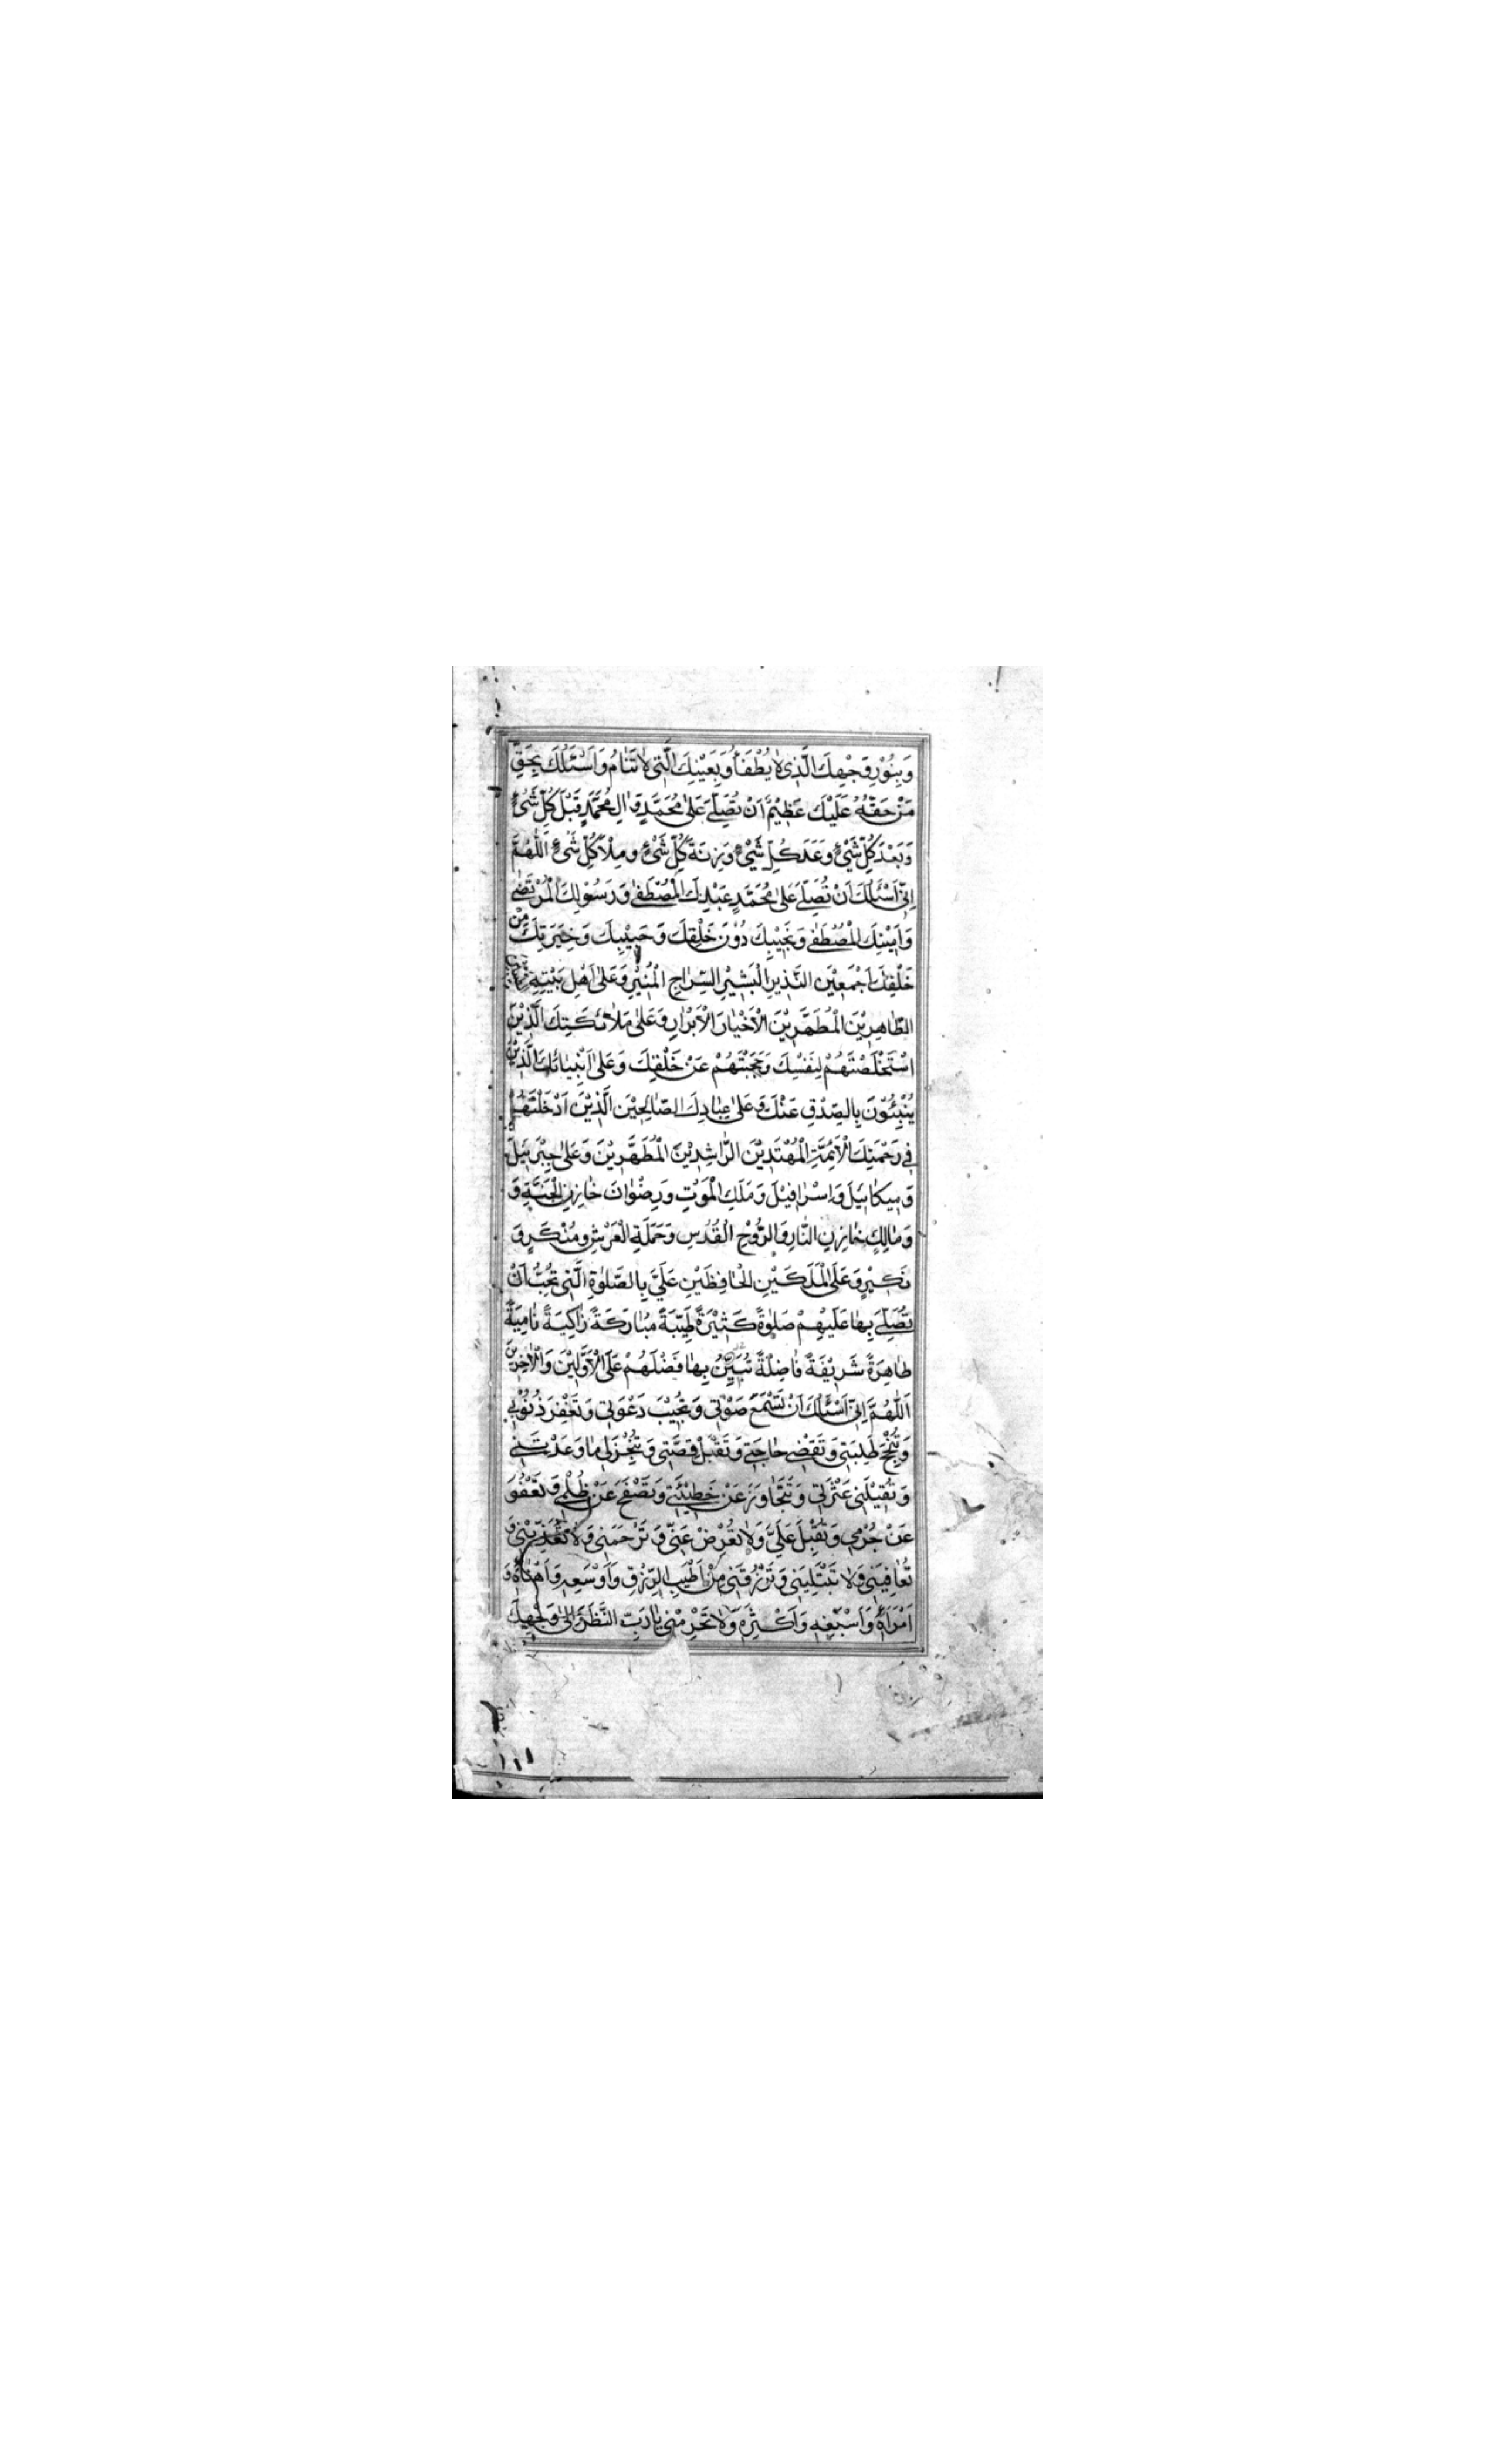 وَبِنُوْرِ وَجْهِكَ الَّذِي لَا يُطْفَأُ وَبِعَيْنِكَ الَّتِي لَا تَنَامُ وَاَسْئَلُكَ بِحَقِّ
مَنْ حَقُّهُ عَلَيْكَ عَظِيْمٌ اَنْ تُصَلِّيَ عَلٰى مُحَمَّدٍ وَاٰلِ مُحَمَّدٍ قَبْلَ كُلِّ شَيْءٍ
وَبَعْدَ كُلِّ شَيْءٍ وَعَدَدَ كُلِّ شَيْءٍ وَزِنَةَ كُلِّ شَيْءٍ وَمِلْأَ كُلِّ شَيْءٍ اَللّٰهُمَّ
اِنِّي اَسْئَلُكَ اَنْ تُصَلِّيَ عَلٰى مُحَمَّدٍ عَبْدِكَ الْمُصْطَفٰى وَرَسُوْلِكَ الْمُرْتَضٰى
وَاَمِيْنِكَ الْمُصْطَفٰى وَنَجِيْبِكَ دُوْنَ خَلْقِكَ وَحَبِيْبِكَ وَخِيَرَتِكَ مِنْ
خَلْقِكَ اَجْمَعِيْنَ النَّذِيْرِ الْبَشِيْرِ السِّرَاجِ الْمُنِيْرِ وَعَلٰى اَهْلِ بَيْتِهِ
الطَّاهِرِيْنَ الْمُطَهَّرِيْنَ الْاَخْيَارِ الْاَبْرَارِ وَعَلٰى مَلَائِكَتِكَ الَّذِيْنَ
اسْتَخْلَصْتَهُمْ لِنَفْسِكَ وَحَجَبْتَهُمْ عَنْ خَلْقِكَ وَعَلٰى اَنْبِيَائِكَ الَّذِيْنَ
يُنْبِئُوْنَ بِالصِّدْقِ عَنْكَ وَعَلٰى عِبَادِكَ الصَّالِحِيْنَ الَّذِيْنَ اَدْخَلْتَهُمْ
فِي رَحْمَتِكَ الْاَئِمَّةِ الْمُهْتَدِيْنَ الرَّاشِدِيْنَ الْمُطَهَّرِيْنَ وَعَلٰى جِبْرَئِيْلَ
وَمِيكَائِيْلَ وَاِسْرَافِيْلَ وَمَلَكِ الْمَوْتِ وَرِضْوَانَ خَازِنِ الْجَنَّةِ وَ
وَمَالِكٍ خَازِنِ النَّارِ وَالرُّوْحِ الْقُدُسِ وَحَمَلَةِ الْعَرْشِ وَمُنْكَرٍ وَ
نَكِيْرٍ وَعَلَى الْمَلَكَيْنِ الْحَافِظَيْنِ عَلَيَّ بِالصَّلٰوةِ الَّتِي تُحِبُّ اَنْ
تُصَلِّيَ بِهَا عَلَيْهِمْ صَلٰوةً كَثِيْرَةً طَيِّبَةً مُبَارَكَةً زَاكِيَةً نَامِيَةً
طَاهِرَةً شَرِيْفَةً فَاضِلَةً تُبَيِّنُ بِهَا فَضْلَهُمْ عَلَى الْاَوَّلِيْنَ وَالْاٰخِرِيْنَ
اَللّٰهُمَّ اِنِّي اَسْئَلُكَ اَنْ تَسْمَعَ صَوْتِي وَتُجِيْبَ دَعْوَتِي وَتَغْفِرَ ذُنُوْبِي
وَتُنْجِحَ طَلِبَتِي وَتَقْضِيَ حَاجَتِي وَتَقْبَلَ قِصَّتِي وَتُنْجِزَ لِي مَا وَعَدْتَنِي
وَتُقِيْلَنِي عَثْرَتِي وَتَتَجَاوَزَ عَنْ خَطِيْئَتِي وَتَصْفَحَ عَنْ ظُلْمِي وَتَعْفُوَ
عَنْ جُرْمِي وَتُقْبِلَ عَلَيَّ وَلَا تُعْرِضْ عَنِّي وَتَرْحَمَنِي وَلَا تُعَذِّبْنِي وَ
تُعَافِيَنِي وَلَا تَبْتَلِيَنِي وَتَرْزُقَنِي مِنْ اَطْيَبِ الرِّزْقِ وَاَوْسَعِهِ وَاَهْنَأِهِ وَ
اَمْرَأِهِ وَاَسْبَغِهِ وَاَكْثَرِهِ وَلَا تَحْرِمْنِي يَا رَبِّ النَّظَرَ اِلٰى وَجْهِكَ